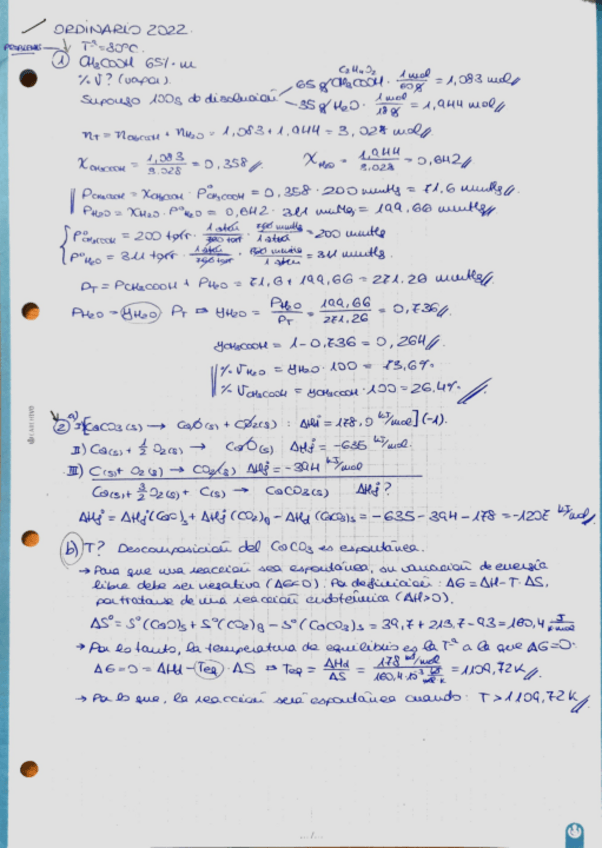 ORDINARIO 2022.
PROBLEMAS → Tª=80ºC.
① CH3COOH 65% m
% V? (vapor).
C2H4O2
Supongo 100g de disolución
65 g CH3COOH · 1 mol / 60 g = 1,083 mol
35 g H2O · 1 mol / 18 g = 1,944 mol
nT = nCH3COOH + nH2O = 1,083 + 1,944 = 3,028 mol
XCH3COOH = 1,083 / 3,028 = 0,358 XH2O = 1,944 / 3,028 = 0,642
PCH3COOH = XCH3COOH · PºCH3COOH = 0,358 · 200 mmHg = 71,6 mmHg.
PH2O = XH2O · PºH2O = 0,642 · 311 mmHg = 199,66 mmHg
PºCH3COOH = 200 torr · 1 atm / 760 torr · 760 mmHg / 1 atm = 200 mmHg
PºH2O = 311 torr · 1 atm / 760 torr · 760 mmHg / 1 atm = 311 mmHg.
PT = PCH3COOH + PH2O = 71,6 + 199,66 = 271,26 mmHg.
PH2O = yH2O · PT ⇒ yH2O = PH2O / PT = 199,66 / 271,26 = 0,736
yCH3COOH = 1 - 0,736 = 0,264
% VH2O = yH2O · 100 = 73,6%
% VCH3COOH = yCH3COOH · 100 = 26,4%
② a) I) [CaCO3(s) → CaO(s) + CO2(g) : ΔHdº = 178,0 kJ/mol] (-1).
II) Ca(s) + 1/2 O2(g) → CaO(s) ΔHfº = -635 kJ/mol.
III) C(s) + O2(g) → CO2(g) ΔHfº = -394 kJ/mol
Ca(s) + 3/2 O2(g) + C(s) → CaCO3(s) ΔHfº?
ΔHfº = ΔHfº(CaO)s + ΔHfº(CO2)g - ΔHd(CaCO3)s = -635 - 394 - 178 = -1207 kJ/mol
b) T? Descomposición del CaCO3 es espontánea.
→ Para que una reacción sea espontánea, su variación de energía
libre debe ser negativa (ΔG<0). Por definición: ΔG = ΔH - T · ΔS,
por tratarse de una reacción endotérmica (ΔH>0).
ΔSº = Sº(CaO)s + Sº(CO2)g - Sº(CaCO3)s = 39,7 + 213,7 - 93 = 160,4 J/K·mol
→ Por lo tanto, la temperatura de equilibrio es la Tª a la que ΔG=0:
ΔG = 0 = ΔHd - Teq · ΔS ⇒ Teq = ΔHd / ΔS = 178 kJ/mol / 160,4·10⁻³ kJ/mol·K = 1109,72 K
→ Por lo que, la reacción será espontánea cuando: T > 1109,72 K